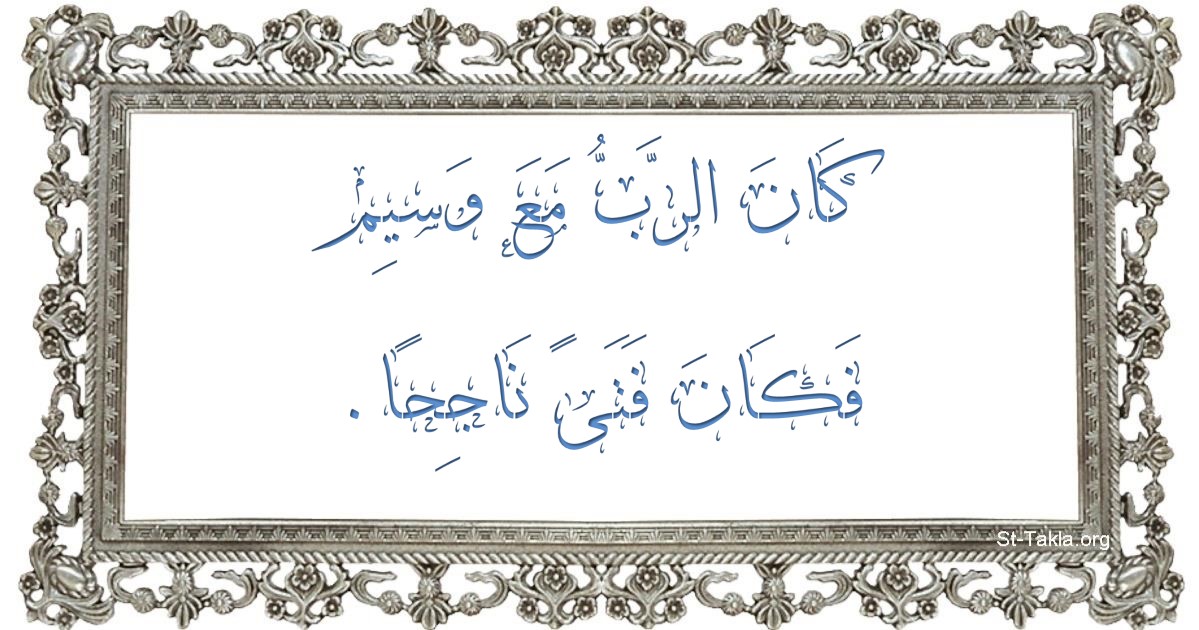 كَانَ الرَّبُّ مَعَ وَسِيمِ
فَكَانَ فَتَىً نَاجِحًا .
St-Takla.org